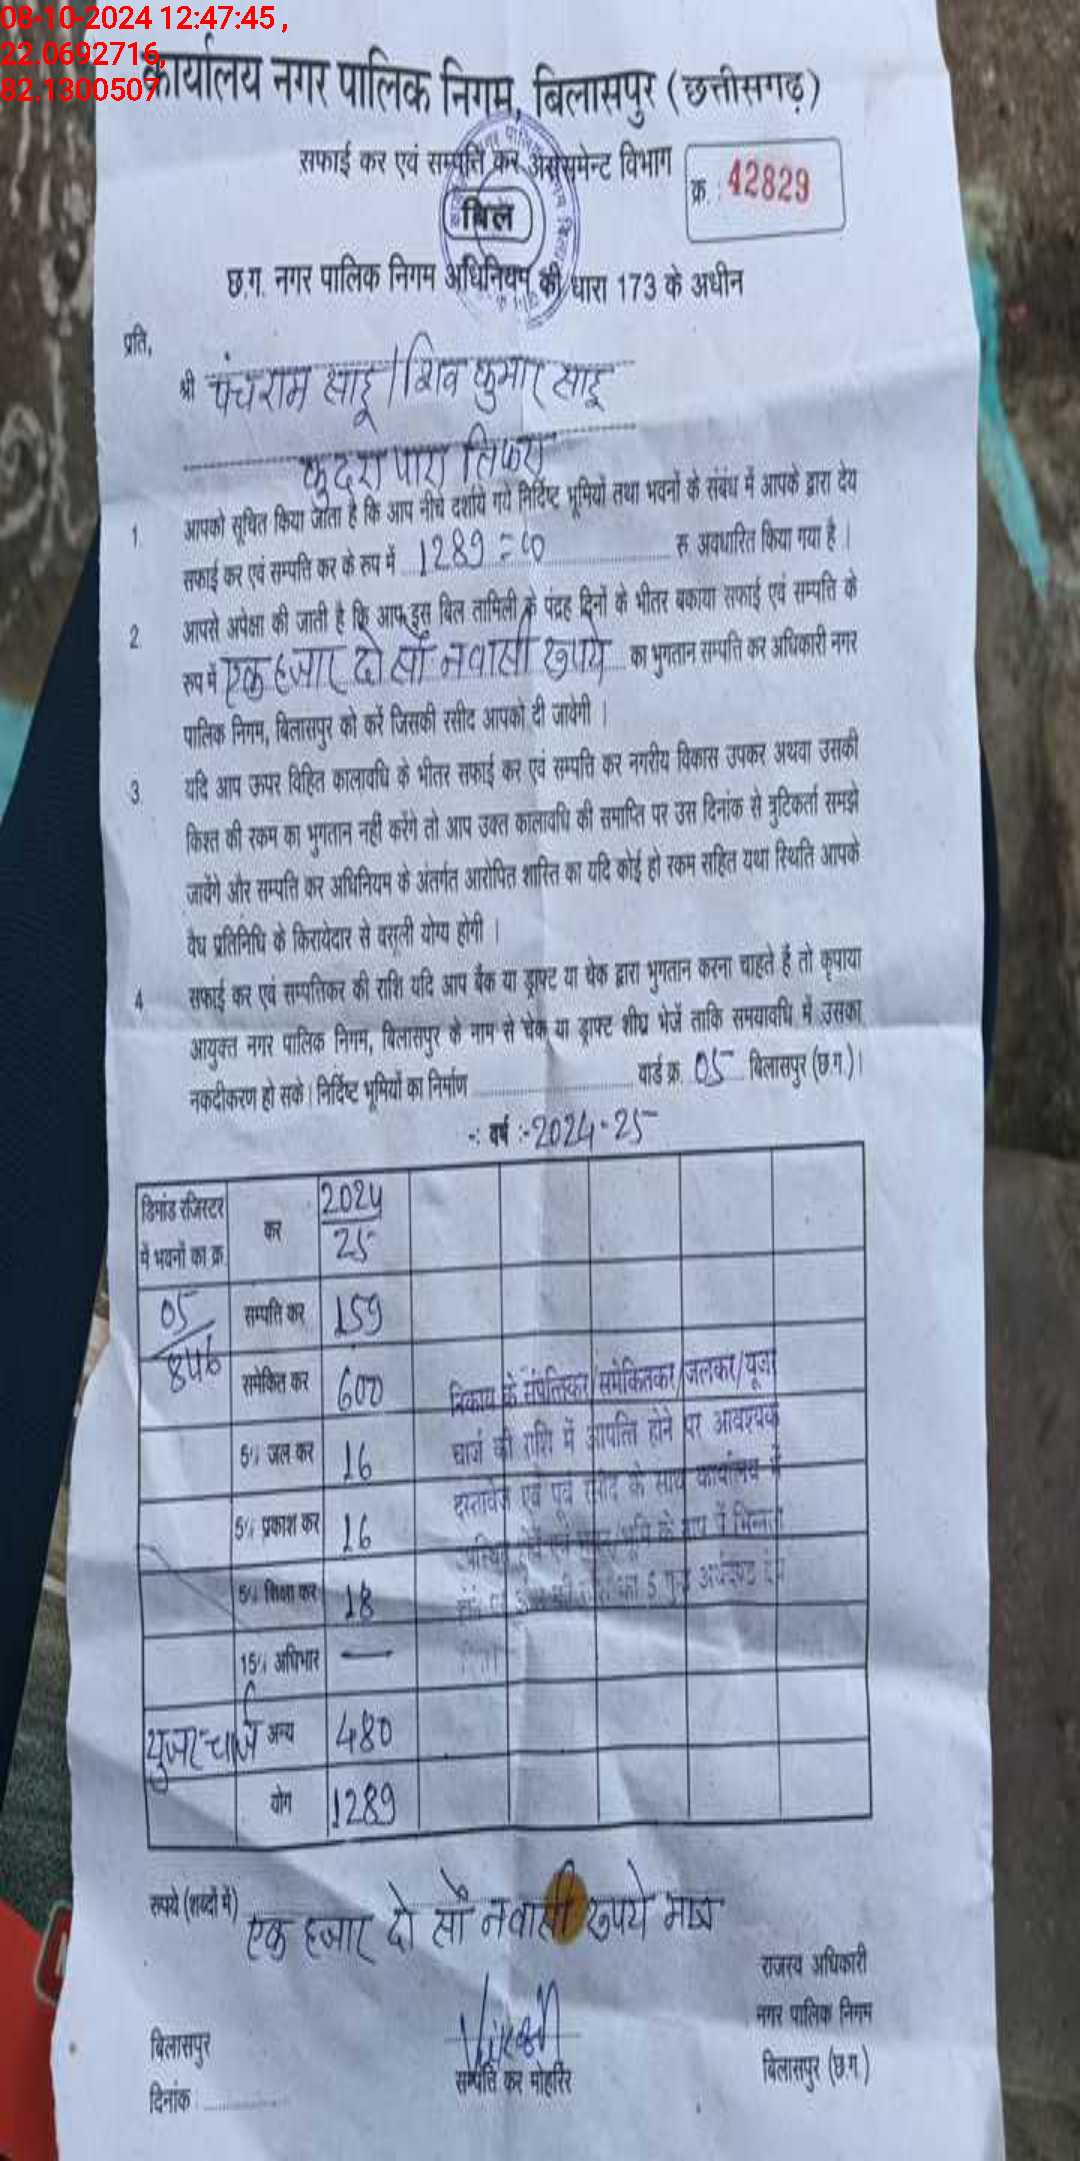 08-10-2024 12:47:45 ,
22.0692716,
82.1300507
कार्यालय नगर पालिक निगम, बिलासपुर (छत्तीसगढ़)
सफाई कर एवं सम्पत्ति कर असेसमेन्ट विभाग
क्र. 42829
बिल
छ.ग. नगर पालिक निगम अधिनियम की धारा 173 के अधीन
प्रति,
श्री पंचराम साहू / शिव कुमार साहू
कुदरा पारा तिफरा
1. आपको सूचित किया जाता है कि आप नीचे दर्शाये गये निर्दिष्ट भूमियों तथा भवनों के संबंध में आपके द्वारा देय
सफाई कर एवं सम्पति कर के रुप में 1289=00 रु. अवधारित किया गया है ।
2. आपसे अपेक्षा की जाती है कि आप इस बिल तामिली के पंद्रह दिनों के भीतर बकाया सफाई एवं सम्पत्ति के
रुप में एक हजार दो सौ नवासी रूपये का भुगतान सम्पति कर अधिकारी नगर
पालिक निगम, बिलासपुर को करें जिसकी रसीद आपको दी जावेगी ।
3. यदि आप ऊपर विहित कालावधि के भीतर सफाई कर एवं सम्पत्ति कर नगरीय विकास उपकर अथवा उसकी
किश्त की रकम का भुगतान नही करेंगे तो आप उक्त कालावधि की समाप्ति पर उस दिनांक से त्रुटिकर्ता समझे
जावेंगे और सम्पति कर अधिनियम के अंतर्गत आरोपित शास्ति का यदि कोई हो रकम सहित यथा स्थिति आपके
वैध प्रतिनिधि के किरायेदार से वसूली योग्य होगी ।
4. सफाई कर एवं सम्पत्तिकर की राशि यदि आप बैंक या ड्राफ्ट या चेक द्वारा भुगतान करना चाहते हैं तो कृपाया
आयुक्त नगर पालिक निगम, बिलासपुर के नाम से चेक या ड्राफ्ट शीघ्र भेजें ताकि समयावधि में उसका
नकदीकरण हो सके । निर्दिष्ट भूमियों का निर्माण वार्ड क्र. 05 बिलासपुर (छ.ग.)।
-: वर्ष :- 2024-25
डिमांड रजिस्टर में भवनों का क्र. कर 2024/25
05/846 सम्पति कर 159
समेकित कर 600
5% जल कर 16
5% प्रकाश कर 16
5% शिक्षा कर 18
15% अधिभार —
युजर चार्ज अन्य 480
योग 1289
निकाय के संपत्तिकर/समेकितकर/जलकर/यूजर
चार्ज की राशि में आपत्ति होने पर आवश्यक
दस्तावेज एवं पूर्व रसीद के साथ कार्यालय में
रूपये (शब्दों में) एक हजार दो सौ नवासी रूपये मात्र
राजस्व अधिकारी
नगर पालिक निगम
बिलासपुर (छ.ग.)
सम्पति कर मोहर्रिर
बिलासपुर
दिनांक